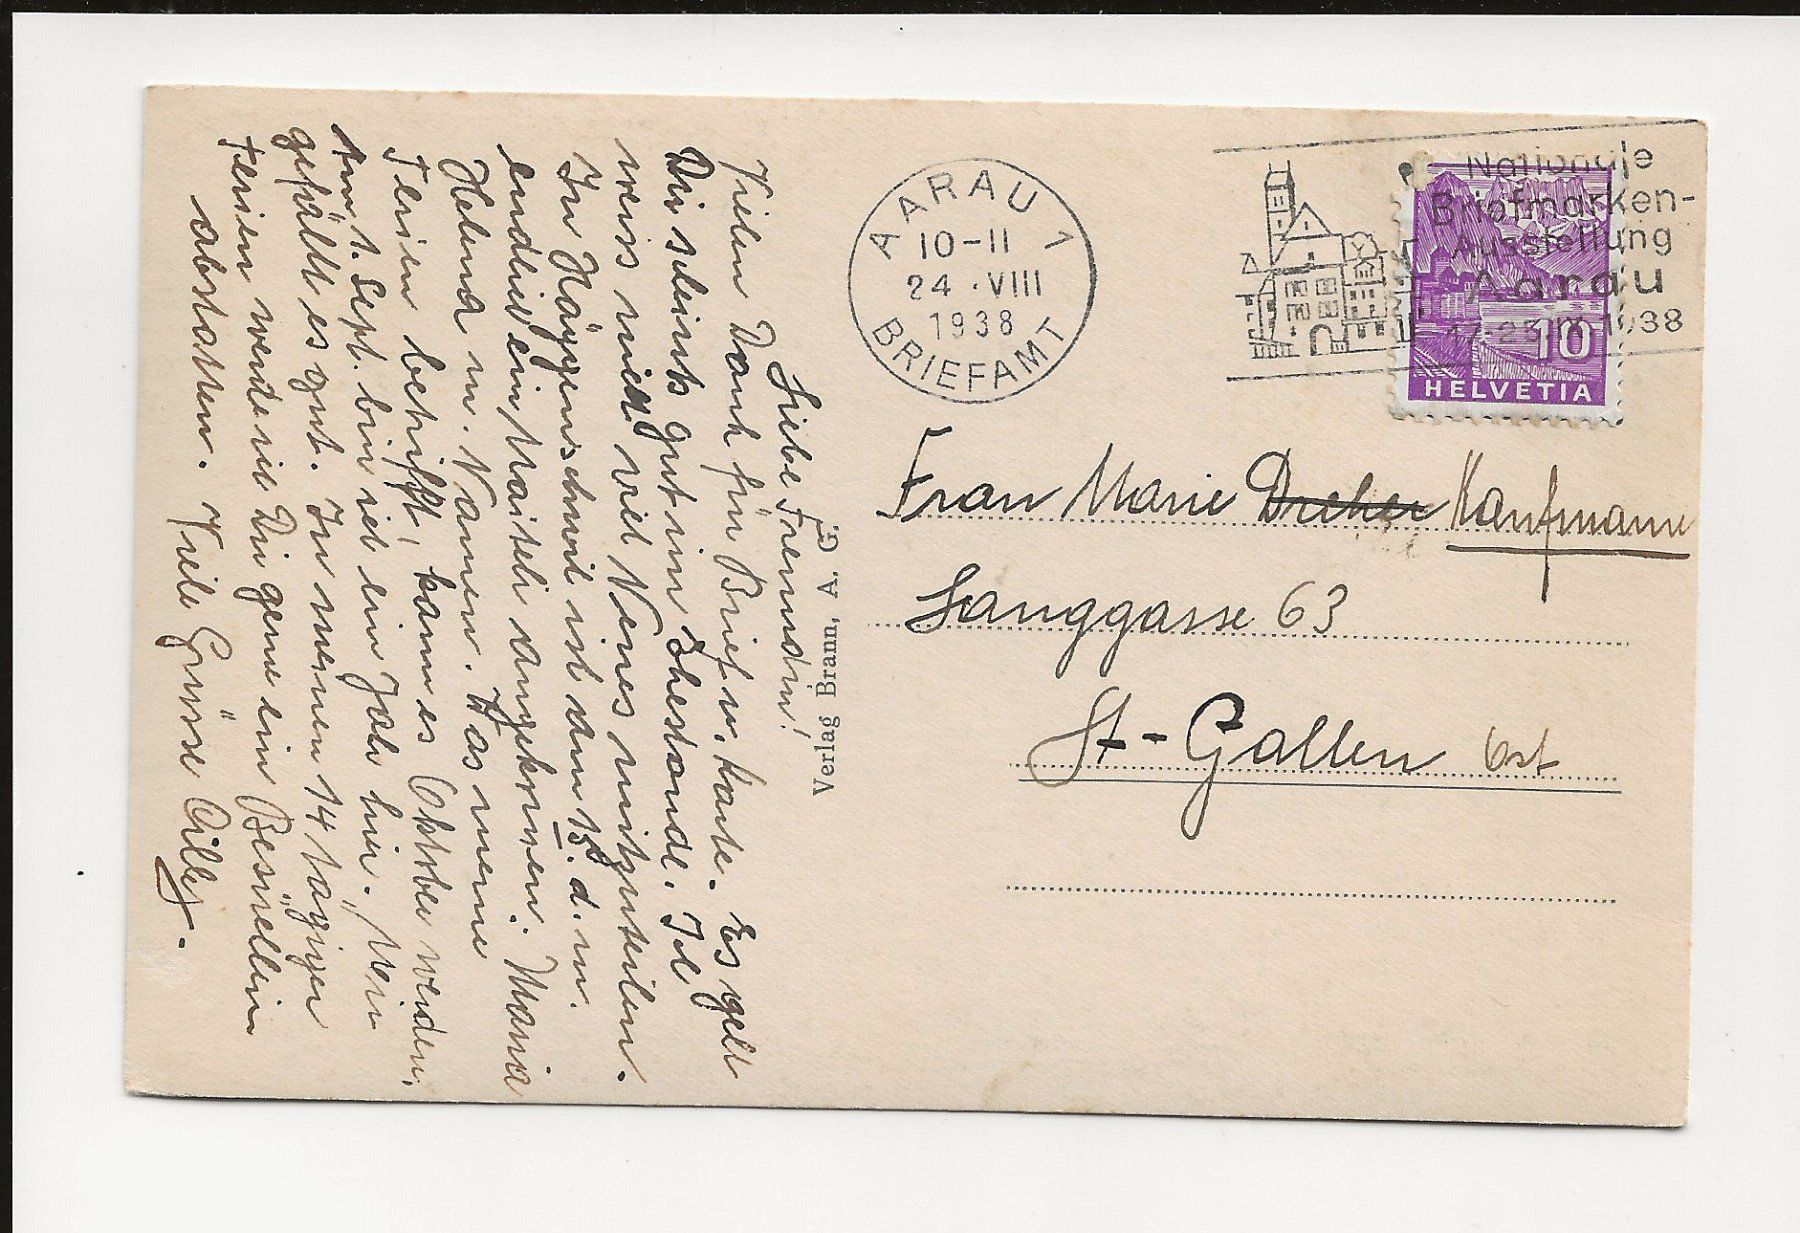 AARAU 1
10-11
24·VIII
1938
BRIEFAMT
Nationale
Briefmarken-
Ausstellung
Aarau
17-25.IX.1938
10
HELVETIA
Frau Marie Dreher Kaufmann
Langgasse 63
St-Gallen Ost
Verlag Brann, A. G.
Liebe Freundin!
Vielen Dank für Brief u. Karte. Es geht
Dir scheints gut im Ehestande. Ich
weis nicht viel Neues mitzuteilen.
In Häggenschwil ist am 15. d. m.
endlich ein Maiteli angekomen. Maria
Helena m. Namen. Was meine
Ferien betrifft, kann es Oktober werden.
Am 1. Sept. bin ich ein Jahr hier.
gefällt es gut. In meinen 14 tägigen
Ferien werde ich Dir gerne ein Besüchlein
abstatten. Viele Grüsse Cilly.